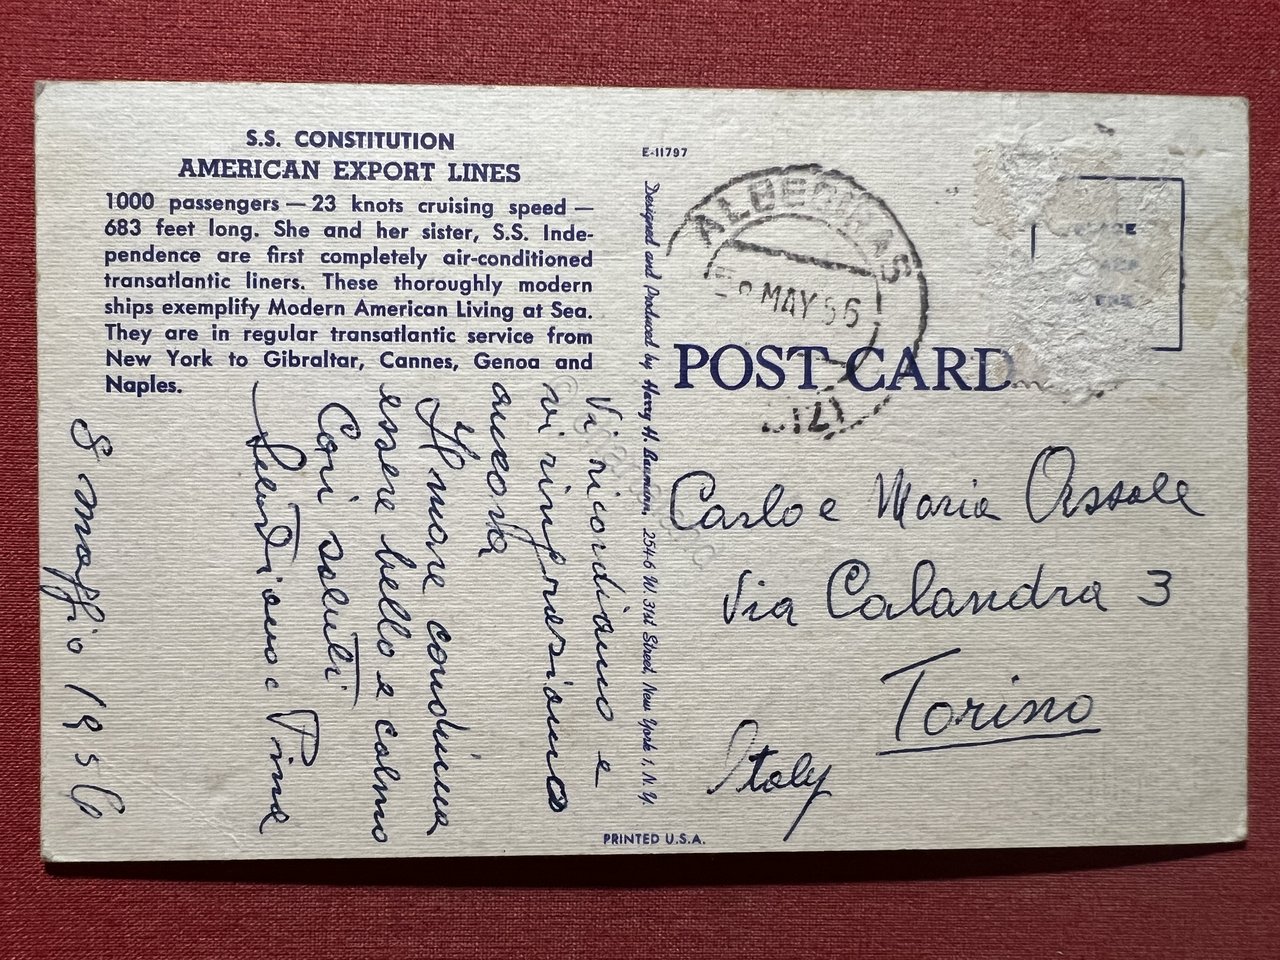 S.S. CONSTITUTION
AMERICAN EXPORT LINES
1000 passengers — 23 knots cruising speed —
683 feet long. She and her sister, S.S. Inde-
pendence are first completely air-conditioned
transatlantic liners. These thoroughly modern
ships exemplify Modern American Living at Sea.
They are in regular transatlantic service from
New York to Gibraltar, Cannes, Genoa and
Naples.
Vi ricordiamo e
vi ringraziamo
ancora
Il mare continua
essere bello e calmo
Cari saluti
e Pina
8 maggio 1956
E-11797
Designed and Produced by Harry H. Baumann, 254-6 W. 31st Street, New York 1, N.Y.
PRINTED U.S.A.
ALGECIRAS
MAY 56
POST CARD
Carlo e Maria
Via Calandra 3
Torino
Italy